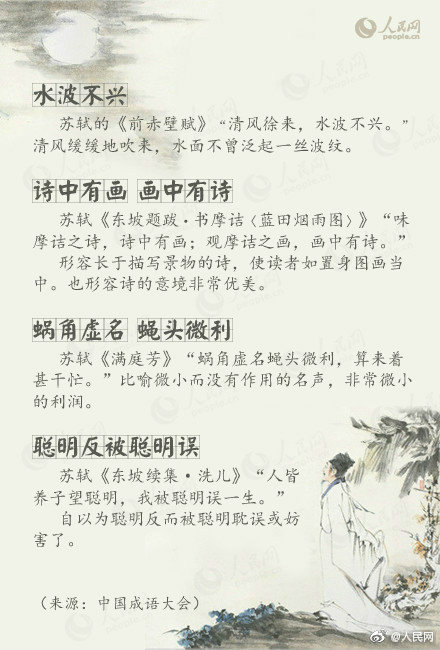 人民网
people.cn
水波不兴
苏轼的《前赤壁赋》“清风徐来，水波不兴。”
清风缓缓地吹来，水面不曾泛起一丝波纹。
诗中有画 画中有诗
苏轼《东坡题跋·书摩诘〈蓝田烟雨图〉》“味
摩诘之诗，诗中有画；观摩诘之画，画中有诗。”
形容长于描写景物的诗，使读者如置身图画当
中。也形容诗的意境非常优美。
蜗角虚名 蝇头微利
苏轼《满庭芳》“蜗角虚名蝇头微利，算来着
甚干忙。”比喻微小而没有作用的名声，非常微小
的利润。
聪明反被聪明误
苏轼《东坡续集·洗儿》“人皆
养子望聪明，我被聪明误一生。”
自以为聪明反而被聪明耽误或妨
害了。
（来源：中国成语大会）
@人民网